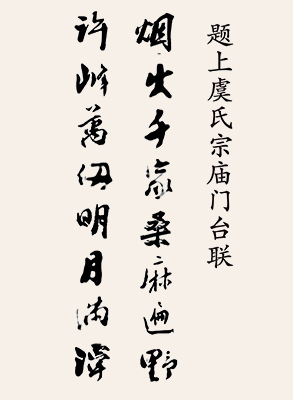 题上虞氏宗庙门台联
烟火千家桑麻遍野
许峰萬仞明月满潭